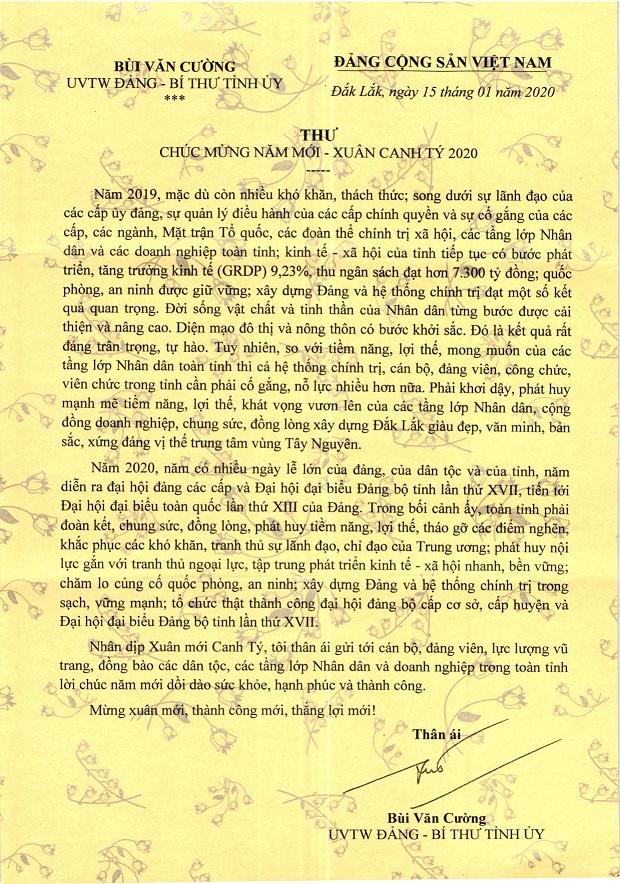 BÙI VĂN CƯỜNG
UVTW ĐẢNG - BÍ THƯ TỈNH ỦY
***
ĐẢNG CỘNG SẢN VIỆT NAM
Đắk Lắk, ngày 15 tháng 01 năm 2020
THƯ
CHÚC MỪNG NĂM MỚI - XUÂN CANH TÝ 2020
-----
Năm 2019, mặc dù còn nhiều khó khăn, thách thức; song dưới sự lãnh đạo của
các cấp ủy đảng, sự quản lý điều hành của các cấp chính quyền và sự cố gắng của các
cấp, các ngành, Mặt trận Tổ quốc, các đoàn thể chính trị xã hội, các tầng lớp Nhân
dân và các doanh nghiệp toàn tỉnh; kinh tế - xã hội của tỉnh tiếp tục có bước phát
triển, tăng trưởng kinh tế (GRDP) 9,23%, thu ngân sách đạt hơn 7.300 tỷ đồng; quốc
phòng, an ninh được giữ vững; xây dựng Đảng và hệ thống chính trị đạt một số kết
quả quan trọng. Đời sống vật chất và tinh thần của Nhân dân từng bước được cải
thiện và nâng cao. Diện mạo đô thị và nông thôn có bước khởi sắc. Đó là kết quả rất
đáng trân trọng, tự hào. Tuy nhiên, so với tiềm năng, lợi thế, mong muốn của các
tầng lớp Nhân dân toàn tỉnh thì cả hệ thống chính trị, cán bộ, đảng viên, công chức,
viên chức trong tỉnh cần phải cố gắng, nỗ lực nhiều hơn nữa. Phải khơi dậy, phát huy
mạnh mẽ tiềm năng, lợi thế, khát vọng vươn lên của các tầng lớp Nhân dân, cộng
đồng doanh nghiệp, chung sức, đồng lòng xây dựng Đắk Lắk giàu đẹp, văn minh, bản
sắc, xứng đáng vị thế trung tâm vùng Tây Nguyên.
Năm 2020, năm có nhiều ngày lễ lớn của đảng, của dân tộc và của tỉnh, năm
diễn ra đại hội đảng các cấp và Đại hội đại biểu Đảng bộ tỉnh lần thứ XVII, tiến tới
Đại hội đại biểu toàn quốc lần thứ XIII của Đảng. Trong bối cảnh ấy, toàn tỉnh phải
đoàn kết, chung sức, đồng lòng, phát huy tiềm năng, lợi thế, tháo gỡ các điểm nghẽn,
khắc phục các khó khăn, tranh thủ sự lãnh đạo, chỉ đạo của Trung ương; phát huy nội
lực gắn với tranh thủ ngoại lực, tập trung phát triển kinh tế - xã hội nhanh, bền vững;
chăm lo củng cố quốc phòng, an ninh; xây dựng Đảng và hệ thống chính trị trong
sạch, vững mạnh; tổ chức thật thành công đại hội đảng bộ cấp cơ sở, cấp huyện và
Đại hội đại biểu Đảng bộ tỉnh lần thứ XVII.
Nhân dịp Xuân mới Canh Tý, tôi thân ái gửi tới cán bộ, đảng viên, lực lượng vũ
trang, đồng bào các dân tộc, các tầng lớp Nhân dân và doanh nghiệp trong toàn tỉnh
lời chúc năm mới dồi dào sức khỏe, hạnh phúc và thành công.
Mừng xuân mới, thành công mới, thắng lợi mới!
Thân ái
Bùi Văn Cường
UVTW ĐẢNG - BÍ THƯ TỈNH ỦY